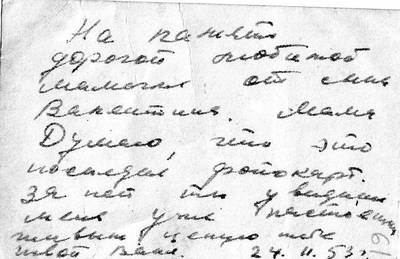 На память
дорогой любимой
мамочке от сына
Валентина. Мама
Думаю, что это
последн фотокарт.
за ней ты увидишь
меня уже настоящим
живым целую тебя
твой Валя. 24. II. 53 г.